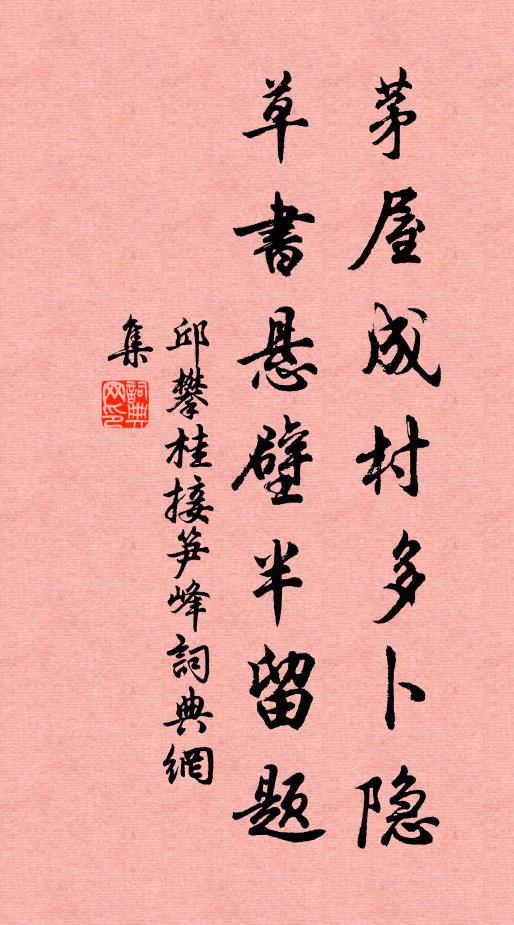 茅屋成村多卜隐
草書悬壁半留题
邱攀桂接笋峰詞典網
集
詞典网印